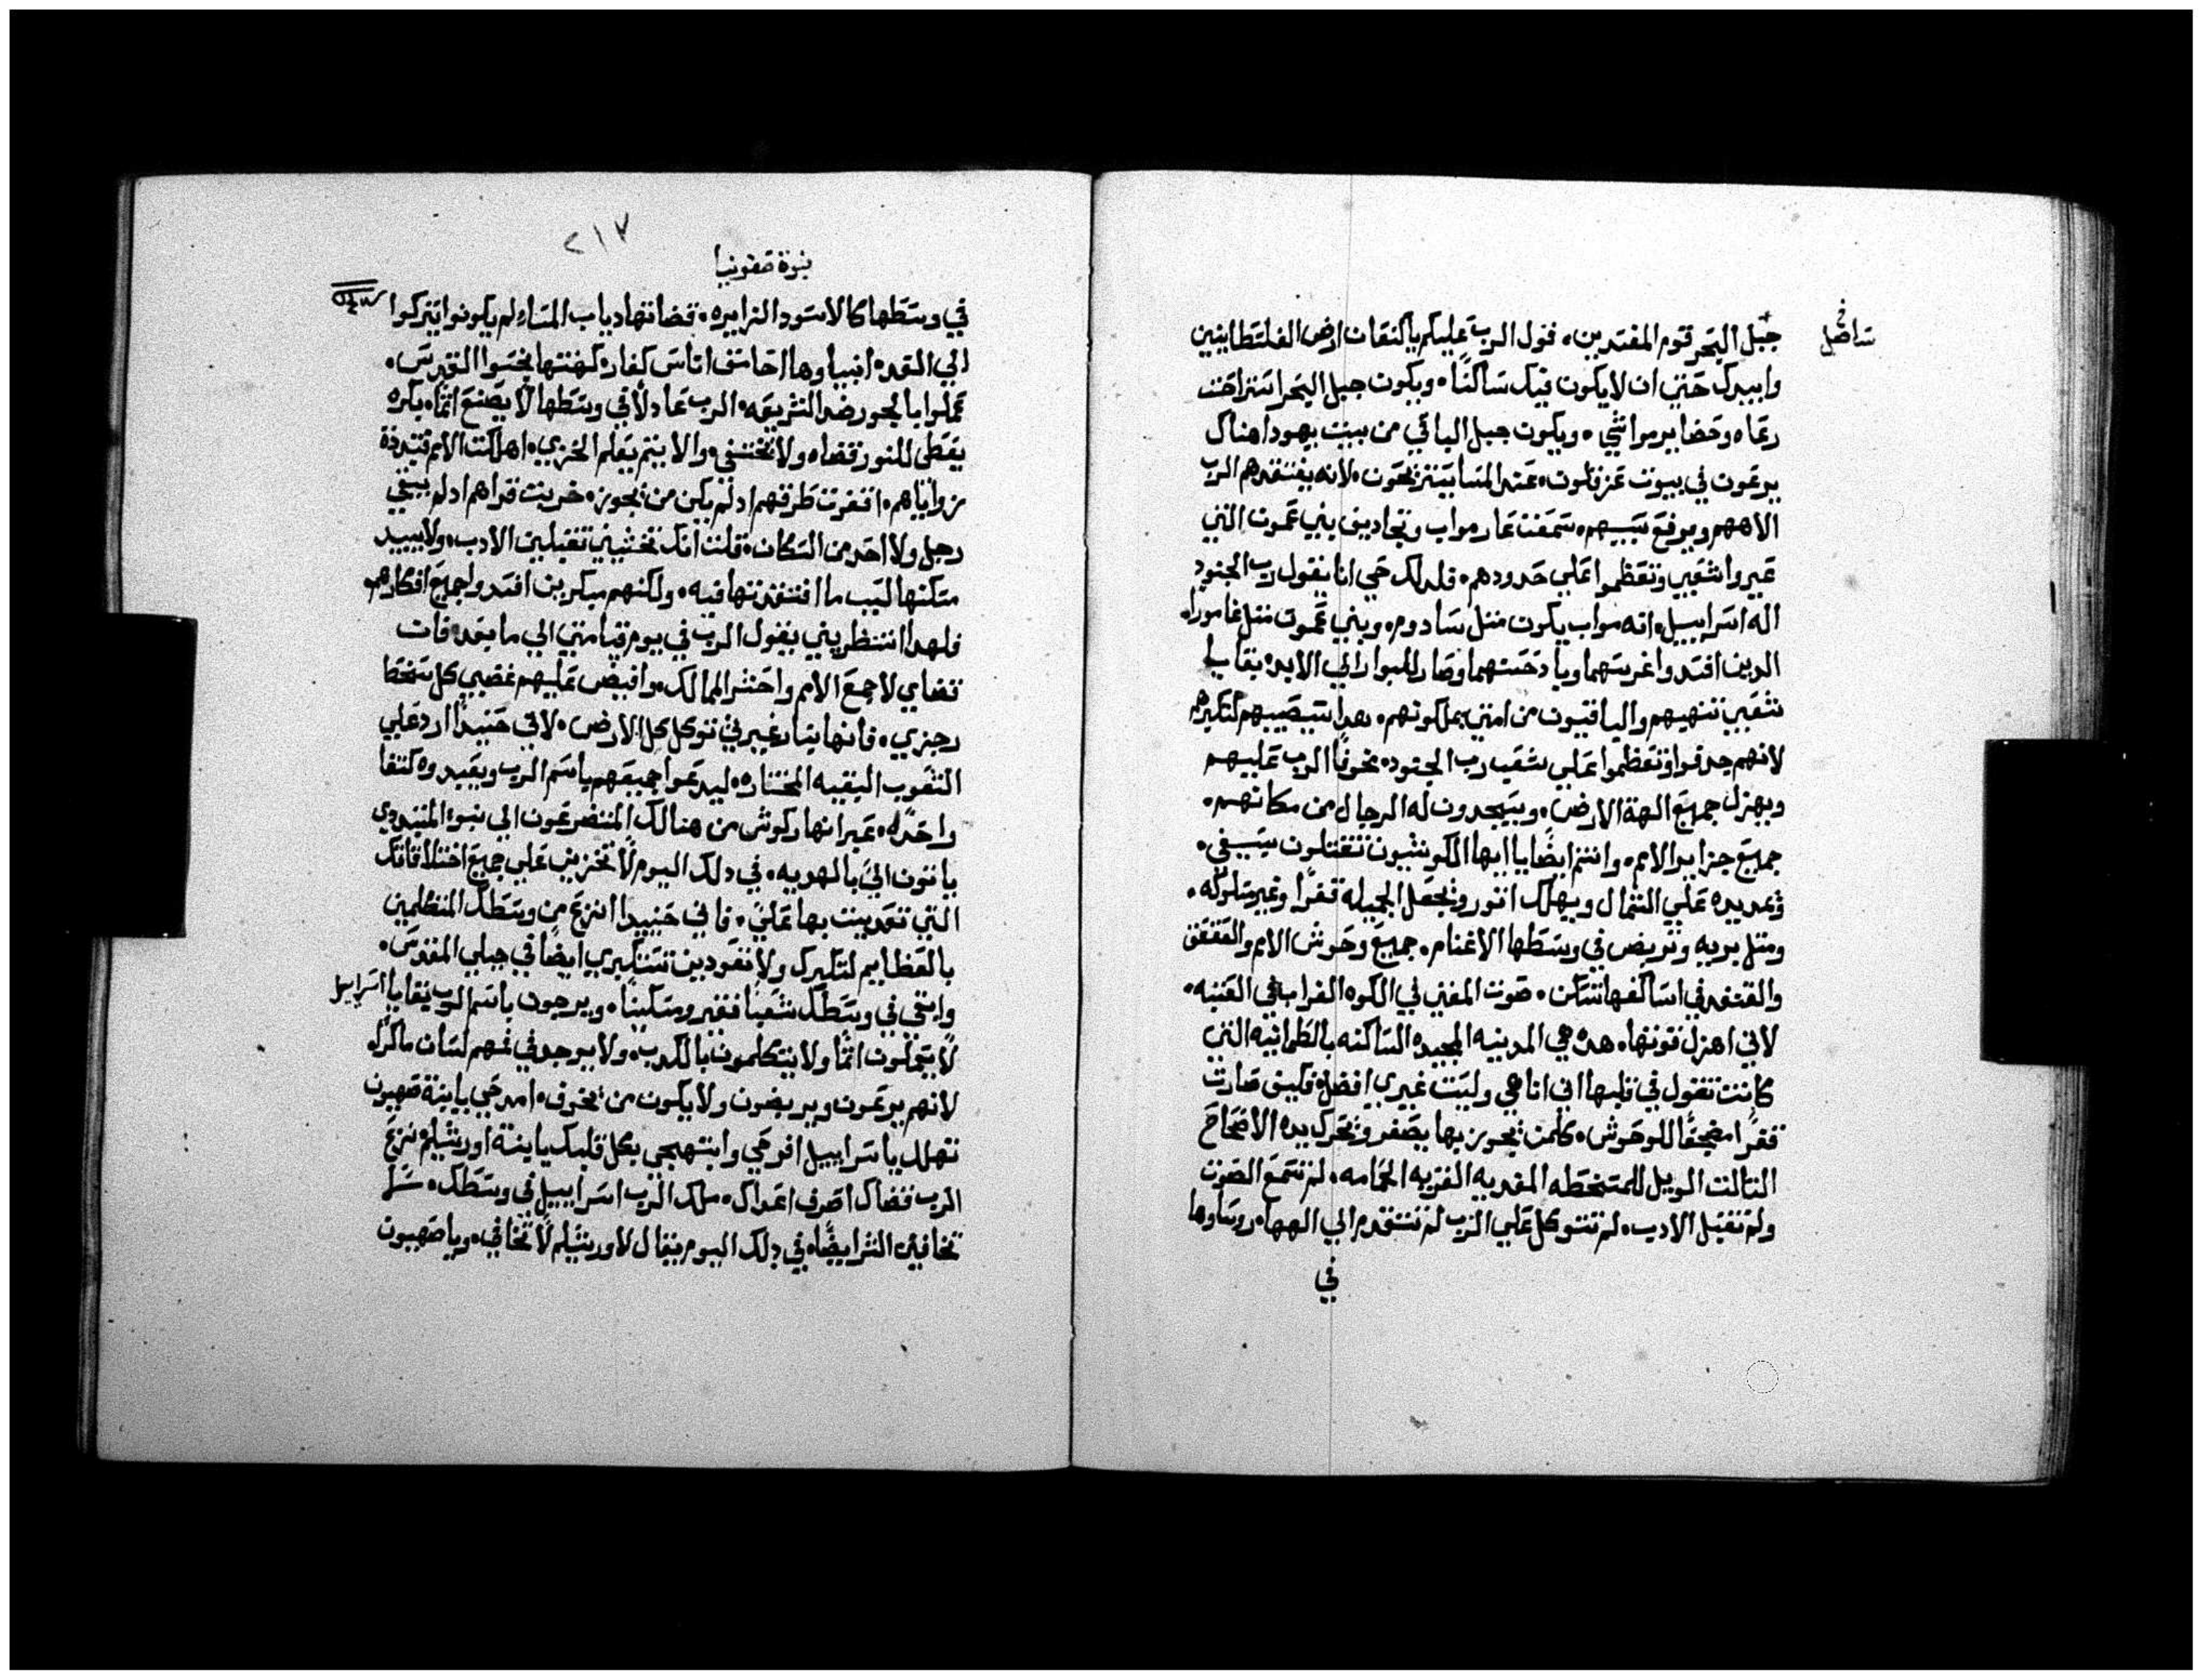 جبل البحر قوم المفتدين. قول الرب عليكم ياكنعان ارض الفلسطانيين
وابيدك حتي ان لا يكون فيك ساكنًا. ويكون حبل البحر استراحت
رعاه وحضاير مواشي. ويكون حبل الباقي من بيت يهودا هناك
يرعون في بيوت عزقلون. عند المسا يتنزحون. لانه يفتقدهم الرب
الاههم ويرفع سبيهم. سمعت عار مواب وتجاديف بني عمون التي
عيروا شعبي وتعظموا علي حدودهم. فلدلك حي انا يقول رب الجنود
اله اسراييل. انه مواب يكون متل سادوم. وبني عمون متل غاموراه
الدين افتدوا غرستهما وبادحتهما وصار للبوار الي الابد. بقايا
شعبي تنهبهم والباقيون من امتي يملكونهم. هدا يتصيبهم لتكبرهم
لانهم جدفوا وتعظموا علي شعب رب الجنود. مخوفًا الرب عليهم
ويهزل جميع الهة الارض. ويسجدون له الرجال من مكانهم.
جميع جزاير الامم. وانتم ايضًا يا ايها الكوشيون تقتلون بسيفي.
ويمد يده علي الشمال ويهلك اتور ويجعل الجميله قفرًا وغير مسلوكه.
ومتل بريه وتربض في وسطها الاغنام. جميع وحوش الامم والققنس
والقنفد في اساكفها تسكن. صوت المغني في الكوه الغراب في العتبه.
لاني اهزل قوتها. هده هي المدينه المجيده الساكنه بالطمانيه التي
كانت تقول في قلبها اني انا هي وليست غيري افضل. فكيف صارت
قفرًا مضجعًا للوحوش. كلمن يجوز بها يصفر ويحرك يده الاصحاح
التالت الويل للمسخطه المفديه القريه الحمامه. لم تسمع الصوت
ولم تقبل الادب. لم تتوكل علي الرب لم تتقدم الي الهها. روساوها
في
٢١٧
نبوة صفونيا
في وسطها كالاسود الزايره. قضاتها دياب المساء لم يكونوا يتركوا
الي الغد. انبياوها احاسف اناس كفار. كهنتها نجسوا القدس.
عملوا بالجور ضد الشريعه. الرب عادلًا في وسطها لا يصنع اثمًا. بكره
يعطي للنور قضاه ولا يختفي. والاثيم يعلم الخزي. اهلكت الامم فتبددة
زواياهم. اقفرت طرقهم اد لم يكن من يجوز. خربت قراهم اد لم يبقي
رجل ولا احد من السكان. قلت انك تخشيني تقبلين الادب. ولا يبيد
مسكنها لسبب ما افتقدتها فيه. ولكنهم مبكرين افسدوا جميع افكارهم
فلهدا انتظريني يقول الرب في يوم قيامتي الي ما بعد. فان
قضاي لاجمع الامم واحشر الممالك. وافيض عليهم غضبي كل سخط
رجزي. فانها بنار غيرتي تتوكل كل الارض. لاني حينيدًا ارد علي
الشعوب النقيه المختاره. ليدعوا جميعهم باسم الرب ويعبدوه كتفًا
واحده. عبر انهار كوش من هنالك المتضرعون الي بنوء المتبددي
ياتون الي بالهديه. في دلك اليوم لا تخزين علي جميع اختلاقاتك
التي تعديت بها علي. فاني حينيدًا انزع من وسطك المتكلمين
بالعظايم لتكبرك ولا تعودين تستكبري ايضًا في جبلي المقدس.
وابقي في وسطك شعبًا فقير ومسكينًا. ويرجون باسم الرب بقايا اسراييل
لا يعملون اثمًا ولا يتكلمون بالكدب. ولا يوجد في فمهم لسان ماكرًا.
لانهم يرعون ويربضون ولا يكون من يخوف. امدحي يا بنة صهيون
تهلل يا سراييل افرحي وابتهجي بكل قلبك يا بنة اورشليم. نزع
الرب قضاك اصرف اعداك. ملك الرب اسراييل في وسطك.
تخافين الشر ايضًا. في دلك اليوم يقال لاورشليم لا تخافي. ويا صهيون